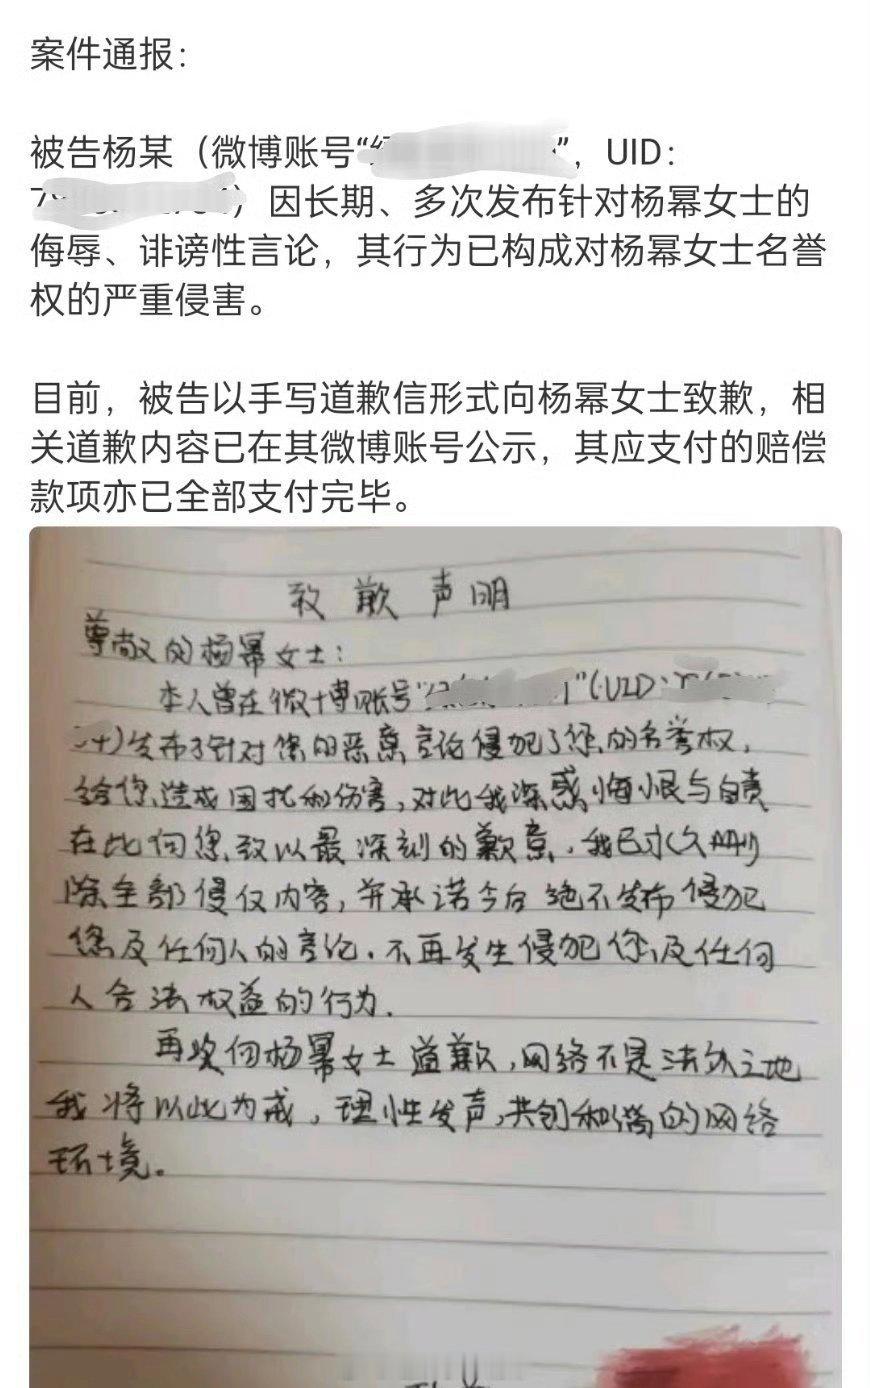 案件通报：
被告杨某（微博账号“
”，UID：
）因长期、多次发布针对杨幂女士的
侮辱、诽谤性言论，其行为已构成对杨幂女士名誉
权的严重侵害。
目前，被告以手写道歉信形式向杨幂女士致歉，相
关道歉内容已在其微博账号公示，其应支付的赔偿
款项亦已全部支付完毕。
致歉声明
尊敬的杨幂女士：
本人曾在微博账号“ ”(UID:
)发布了针对您的恶意言论侵犯了您的名誉权，
给您造成困扰和伤害，对此我深感悔恨与自责
在此向您致以最深刻的歉意，我已永久删
除全部侵权内容，并承诺今后绝不发布侵犯
您及任何人的言论，不再发生侵犯您及任何
人合法权益的行为.
再次向杨幂女士道歉，网络不是法外之地
我将以此为戒，理性发声，共创和谐的网络
环境。